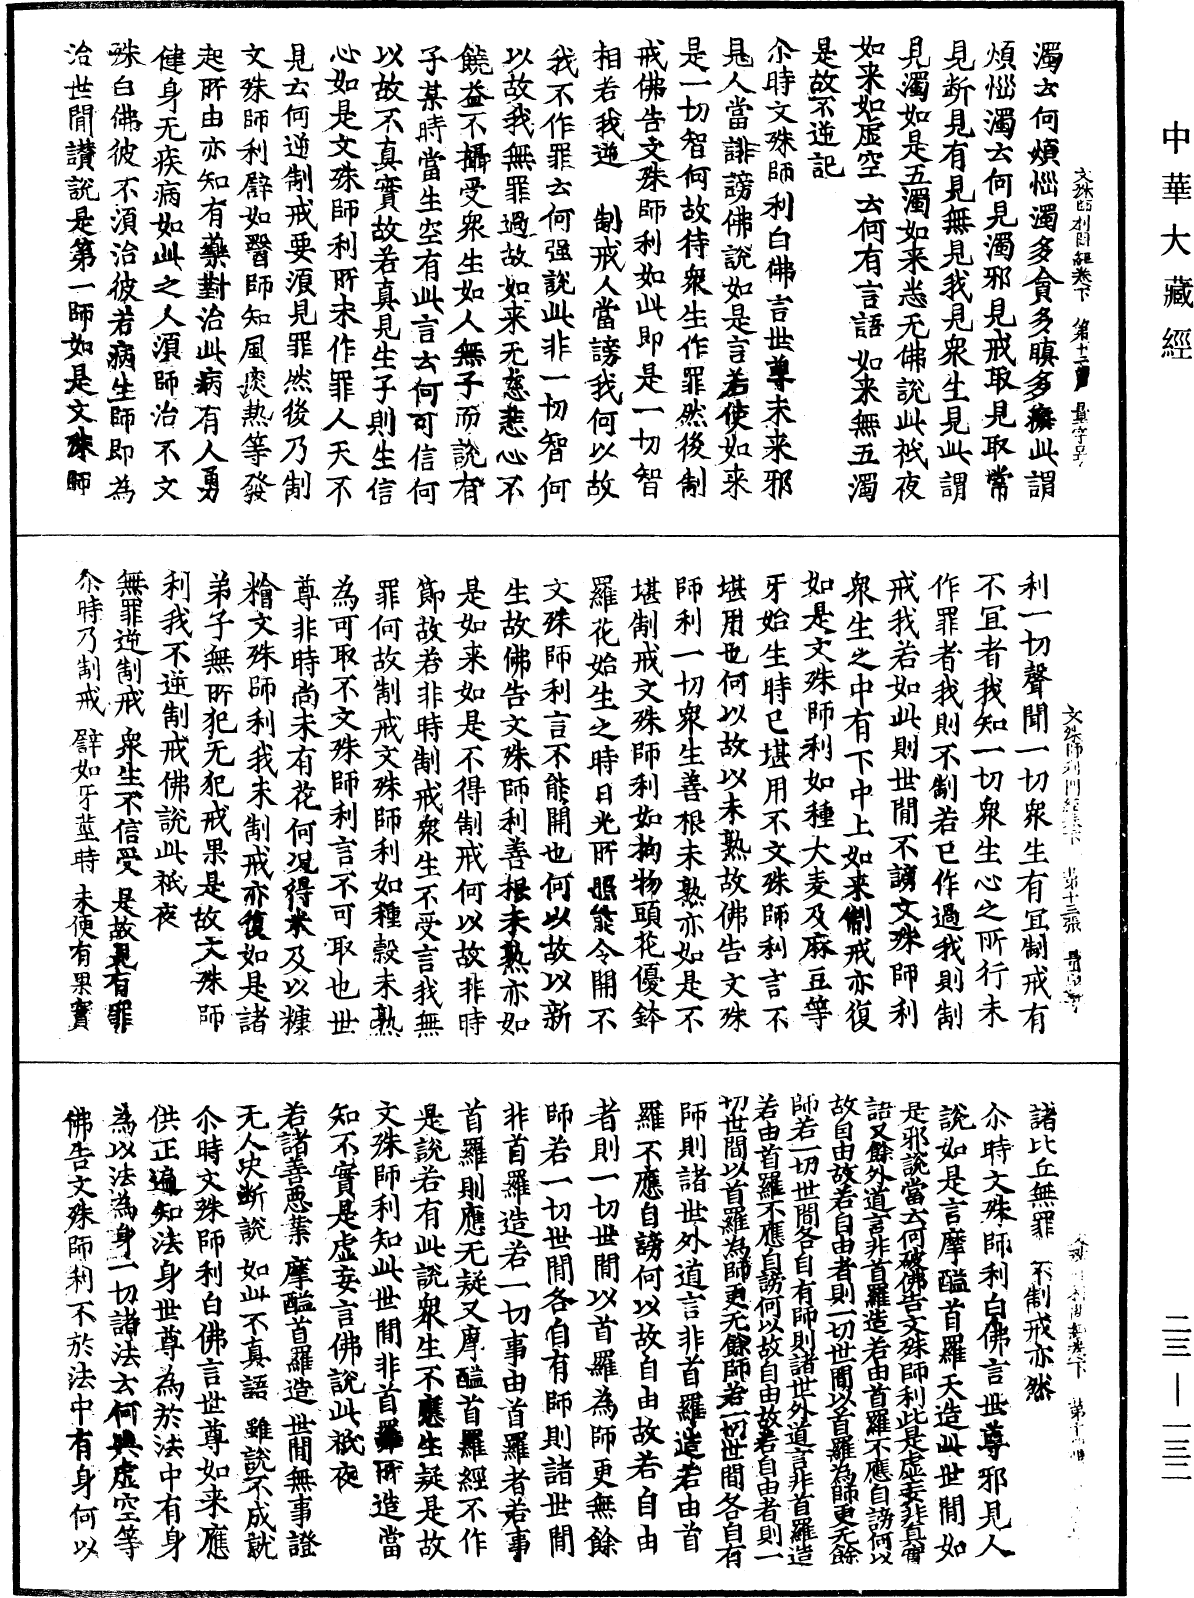 中華大藏經
文殊師利問經卷下　第十二張　量字号
濁云何煩惱濁多貪多瞋多癡此謂
煩惱濁云何見濁邪見戒取見取常
見断見有見無見我見衆生見此謂
見濁如是五濁如来悉无佛說此祇夜
如来如虛空　云何有言語　如来無五濁
是故不逆記
尒時文殊師利白佛言世尊未来邪
見人當誹謗佛說如是言若使如来
是一切智何故待衆生作罪然後制
戒佛告文殊師利如此即是一切智
相若我逆　制戒人當謗我何以故
我不作罪云何强說此非一切智何
以故我無罪過故如来无慈悲心不
饒益不攝受衆生如人無子而說有
子某時當生空有此言云何可信何
以故不真實故若真見生子則生信
心如是文殊師利所未作罪人天不
見云何逆制戒要湏見罪然後乃制
文殊師利譬如醫師知風痰熱等發
起所由亦知有藥對治此病有人勇
健身无疾病如此之人湏師治不文
殊白佛彼不湏治彼若病生師即為
治世間讃說是第一師如是文殊師
文殊師利問經卷下　第十三張　量字号
利一切聲聞一切衆生有宜制戒有
不宜者我知一切衆生心之所行未
作罪者我則不制若已作過我則制
戒我若如此則世間不謗文殊師利
衆生之中有下中上如来制戒亦復
如是文殊師利如種大麦及麻豆等
牙始生時已堪用不文殊師利言不
堪用也何以故以未熟故佛告文殊
師利一切衆生善根未熟亦如是不
堪制戒文殊師利如拘物頭花優鉢
羅花始生之時日光所照能令開不
文殊師利言不能開也何以故以新
生故佛告文殊師利善根未熟亦如
是如来如是不得制戒何以故非時
節故若非時制戒衆生不受言我無
罪何故制戒文殊師利如種穀未熟
為可取不文殊師利言不可取也世
尊非時尚未有花何况得米及以糠
糩文殊師利我未制戒亦復如是諸
弟子無所犯无犯戒果是故文殊師
利我不逆制戒佛說此祇夜
無罪逆制戒　衆生不信受　是故見有罪
尒時乃制戒　譬如牙莖時　未便有果實
諸比丘無罪　不制戒亦然
尒時文殊師利白佛言世尊邪見人
說如是言摩醯首羅天造此世間如
是邪說當云何破佛告文殊師利此是虛妄非真實
語又餘外道言非首羅造若由首羅不應自謗何以
故自由故若自由者則一切世間以首羅為師更无餘
師若一切世間各自有師則諸世外道言非首羅造
若由首羅不應自謗何以故自由故若自由者則一
切世間以首羅為師更无餘師若一切世間各自有
師則諸世外道言非首羅造若由首
羅不應自謗何以故自由故若自由
者則一切世間以首羅為師更無餘
師若一切世間各自有師則諸世間
非首羅造若一切事由首羅者若事
首羅則應无疑又摩醯首羅經不作
是說若有此說衆生不應生疑是故
文殊師利知此世間非首羅所造當
知不實是虛妄言佛說此祇夜
若諸善惡業　摩醯首羅造　世間無事證
无人決断說　如此不真語　雖說不成就
尒時文殊師利白佛言世尊如来應
供正遍知法身世尊為於法中有身
為以法為身一切諸法云何與虛空等
佛告文殊師利不於法中有身何以
二三—一三二